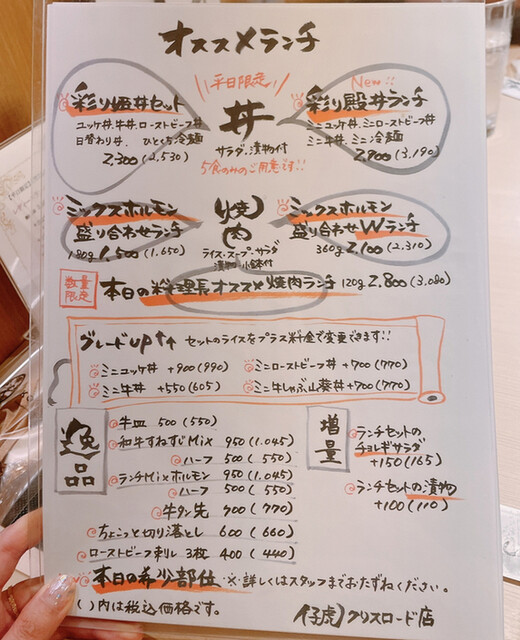 オススメランチ
平日限定
丼
サラダ、漬物付
5食のみのご用意です!!
彩り姫丼セット
ユッケ丼、牛丼、ローストビーフ丼
日替わり丼、ひとくち冷麺
2,300(2,530)
New!!
彩り殿丼ランチ
ミニユッケ丼、ミニローストビーフ丼
ミニ牛丼、ミニ冷麺
2,900(3,190)
焼肉
ライス・スープ・サラダ
漬物・小鉢付
ミックスホルモン
盛り合わせランチ
180g 1,500(1,650)
ミックスホルモン
盛り合わせWランチ
360g 2,100(2,310)
数量限定
本日の料理長オススメ焼肉ランチ 120g 2,800(3,080)
グレードup↑↑ セットのライスをプラス料金で変更できます!!
ミニユッケ丼 +900(990)
ミニローストビーフ丼 +700(770)
ミニ牛丼 +550(605)
ミニ牛しゃぶ山葵丼 +700(770)
逸品
牛皿 500(550)
和牛すねすじMix 950(1,045)
ハーフ 500(550)
ランチMixホルモン 950(1,045)
ハーフ 500(550)
牛タン先 700(770)
ちょこっと切り落とし 600(660)
ローストビーフ刺し 3枚 400(440)
増量
ランチセットの
チョレギサラダ
+150(165)
ランチセットの漬物
+100(110)
本日の希少部位 ※詳しくはスタッフまでおたずねください。
( )内は税込価格です。
仔虎 クリスロード店